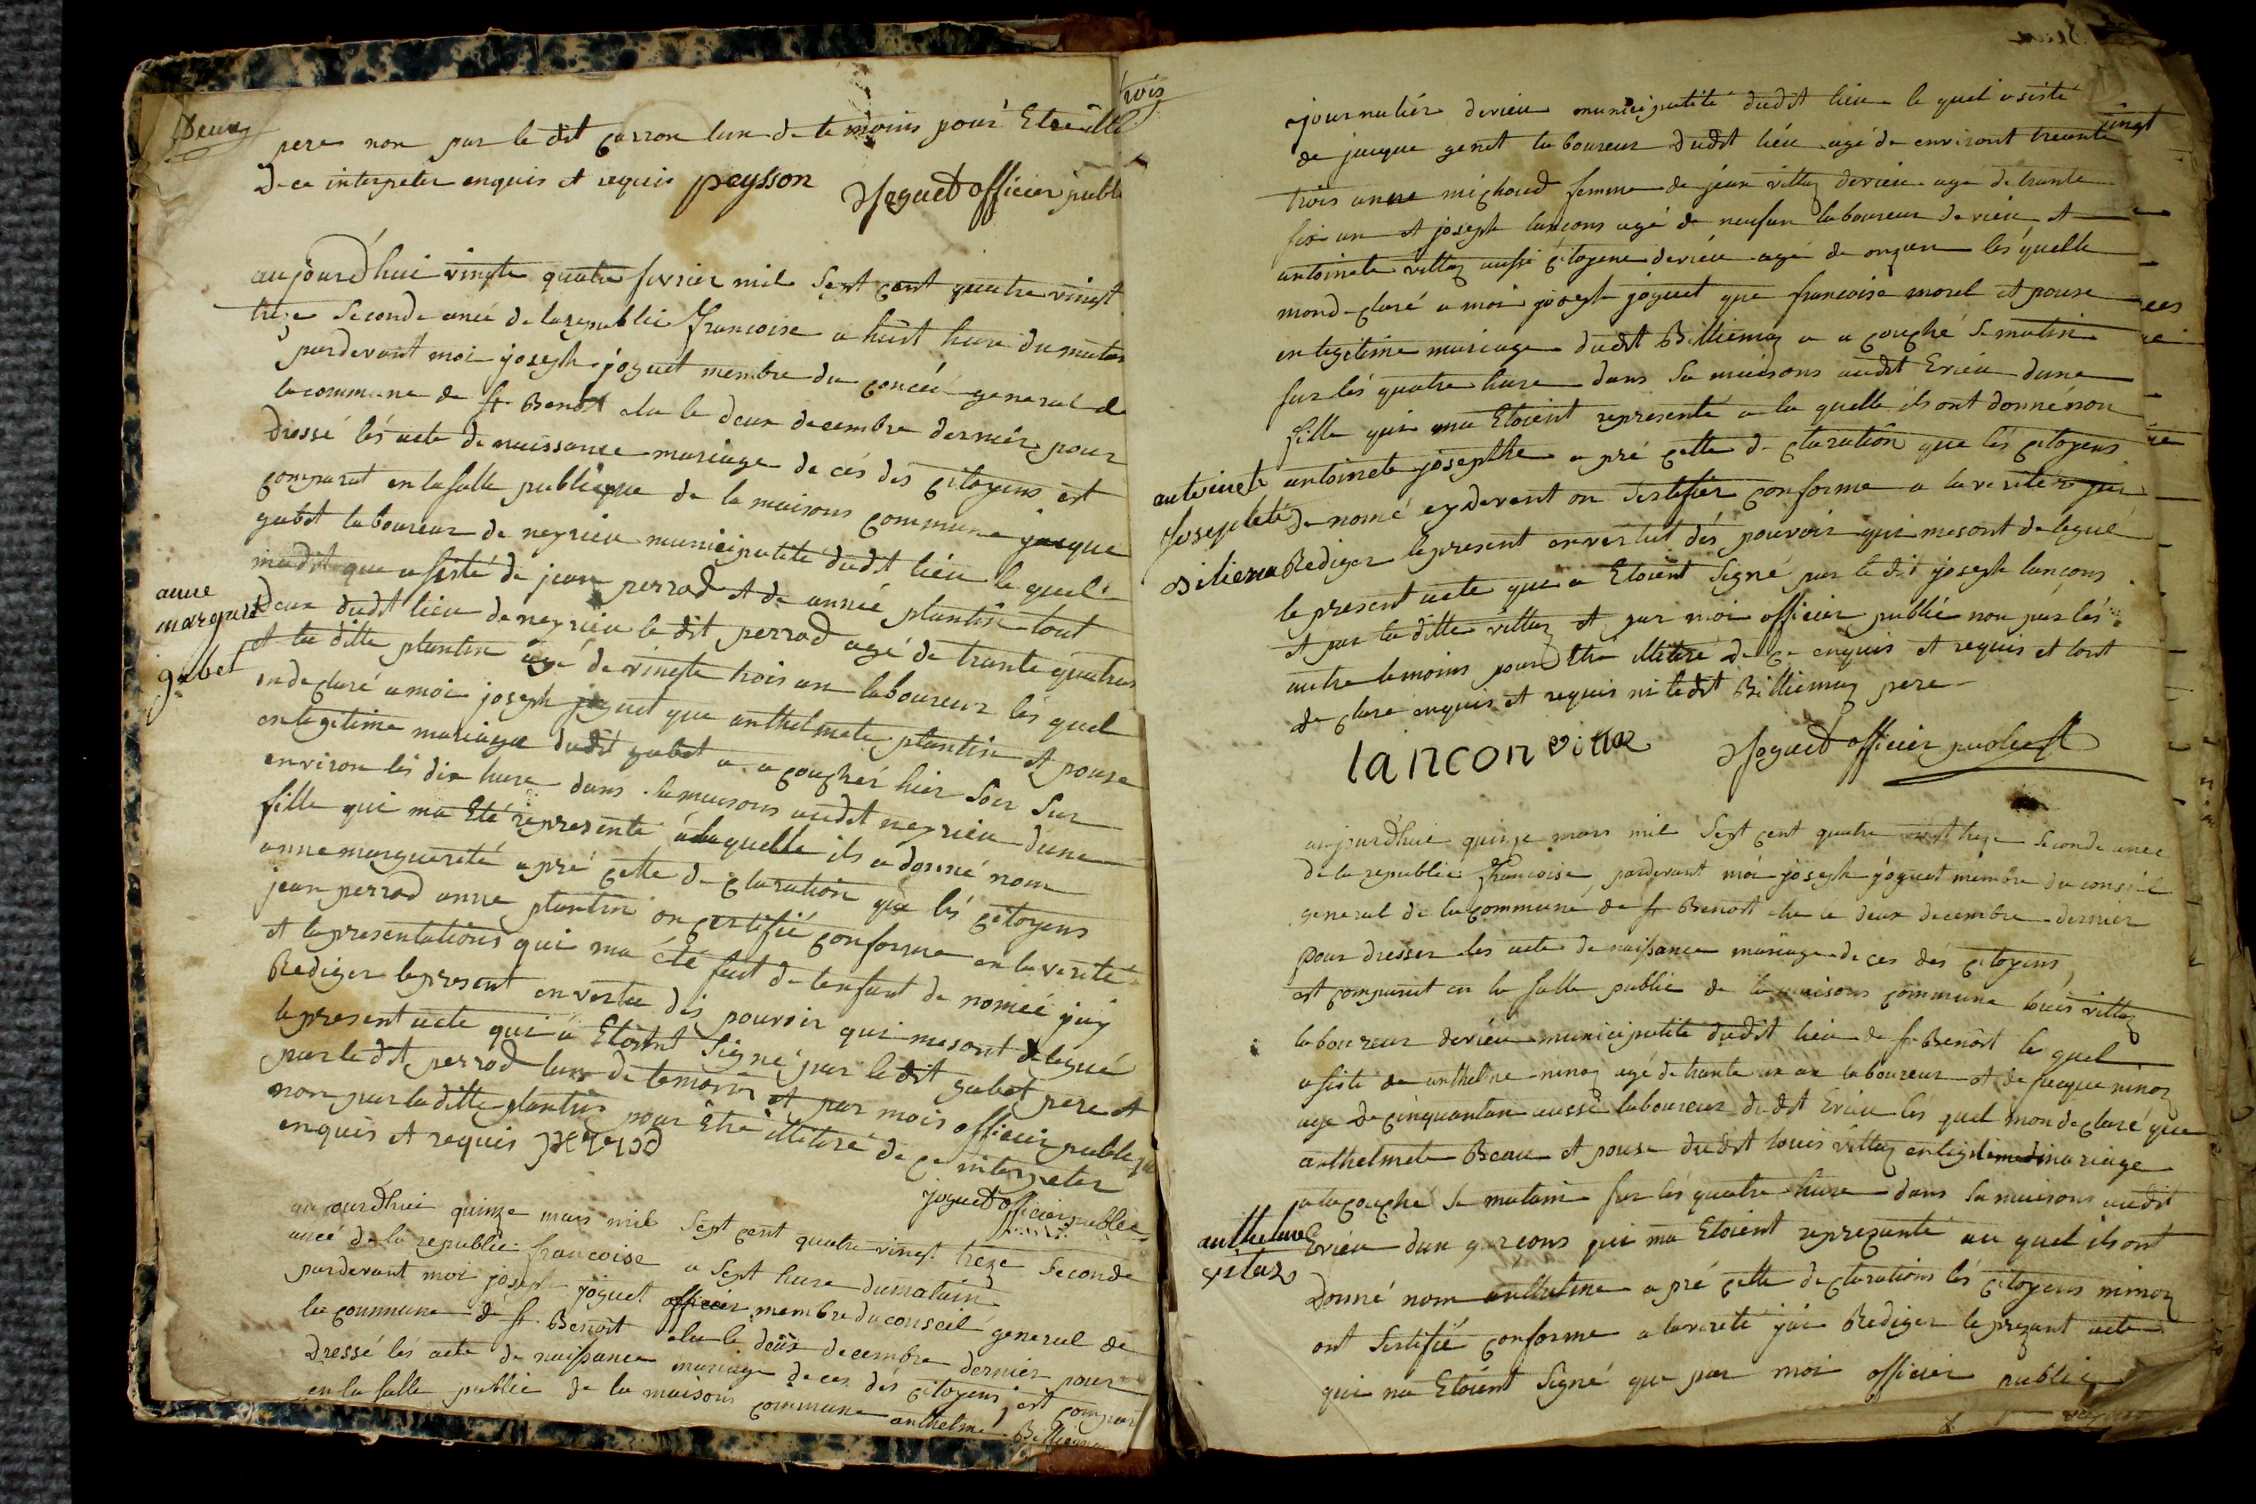 Deux
pere non par le dit carron lun de temoins pour Etre ille
de ce interpeter enquis et requis peysson Joguet officier publi
aujourd'hui vingte quatre fevrier mil sept cent quatre vingt
treze seconde anée de la republic francoise a huit hure du matin
pardevant moi joseph joguet membre du conceil general de
la commune de st Benoit elu le deux decembre dernier pour
dressé lés acte de naissance mariage de cés des citoyens est
comparut en la salle publique de la maisons commune jacque
gabet laboureur de neyrieu municipalité dudit lieu le quel
madit que assisté de jean perrad et de anneé plantin tout
deux dudit lieu de neyrieu le dit perrad agé de trante quatres
et la ditte plantin agé de vingte trois an laboureur lés quel
on declaré a moi joseph joguet que anthelmete plantin et pouse
en legitime mariage dudit gabet a acouchér hier soir sur
environ lés dix hure dans sa maisons audit neyrieu dune
fille qui ma Eté representé a laquelle ils a donné nom
anne margueritte apré cette declaration que lés citoyens
jean perrad anne plantin on certifié conforme en la verité
et la presentations qui ma été fait de lenfant de nomeé jaiy
Rediger lepresent en vertue dés pouvoir qui mesont delegué
le present acte qui a Etoient signé par le dit gabet pere et
par le dit perrad lun de temoin et par mois officier public
non par la ditte plantin pour Etre illitéré de ce interpeter
enquis et requis perrad
joguet officier public
anne
margueri
gabet
aujourdhui quinze mars mil sept cent quatre vingt treze seconde
aneé de la republic francoise a sept hure dumatain
pardevant moi joseph joguet officier membre du conseil general de
la commune de st Benoit elu le deux decembre dernier pour
dressé lés acte de naissance mariage de ces des citoyens est compar
en la salle public de la maisons commune anthelme Billiemaz
trois
journalier d'erieu municipalité dudit lieu le quel asisté
de jacque genet laboureur dudit lieu agé de environt treante
trois anne michoud femme de jean villaz derieu age de trante
six an et joseph lancons agé de neufan laboureur de rieu et
antoinete villaz aussi citoyene derieu agé de onzan lés quelle
mondeclaré a moi joseph joguet que francoise morel et pouse
en legitime mariage dudit Billiemaz a acouché se matin
sur lés quatre hure dans sa maisons audit Erieu dune
fille qui ma Etoient representé a la quelle ils ont donné non
antoinete josepthe apré cette declaration que lés citoyens
denomé cy devant on sertifier conforme a la verité jai
Rediger lepresent en vertut dés pouvoir qui mesont delegué
le present acte que a Etoient signé par le dit joseph lancons
et par la ditte villaz et par moi officier public non pas lés
autre temoins pour Etre illitéré de ce enquis et requis et tout
declare enquis et requis ni ledit Billiemaz pere
lançon villaz Joguet officier public
antoinete
Josephete
Biliema
aujourdhui quinze mars mil sept cent quatre vingt treze seconde aneé
de la republic francoise pardevant moi joseph joguet membre du conseil
general de la commune de st Benoit elu le deux decembre dernier
pour dresser lés acte de naissance mariage de ces dés citoyens
est comparut en la salle public de la maisons commune louis villaz
laboureur derieu municipalité dudit lieu de st Benoit le quel
asisté de anthelme ninoz agé de trante un an laboureur et de jacque ninoz
age de cinquantan aussi laboureur dudit Erieu lés quel mondeclaré que
anthelmete Beau et pouse dudit louis villaz en legitime mariage
a acouché se matain sur lés quatre hure dans sa maisons audit
Erieu dun garcons qui ma Etoient reprezanté au quel ils ont
donné nom anthelme apré cette declarations lés citoyens ninoz
ont sertifié conforme a la verité jai Rediger leprezant acte
qui na Etoient signé que par moi officier public
anthelme
vilaz